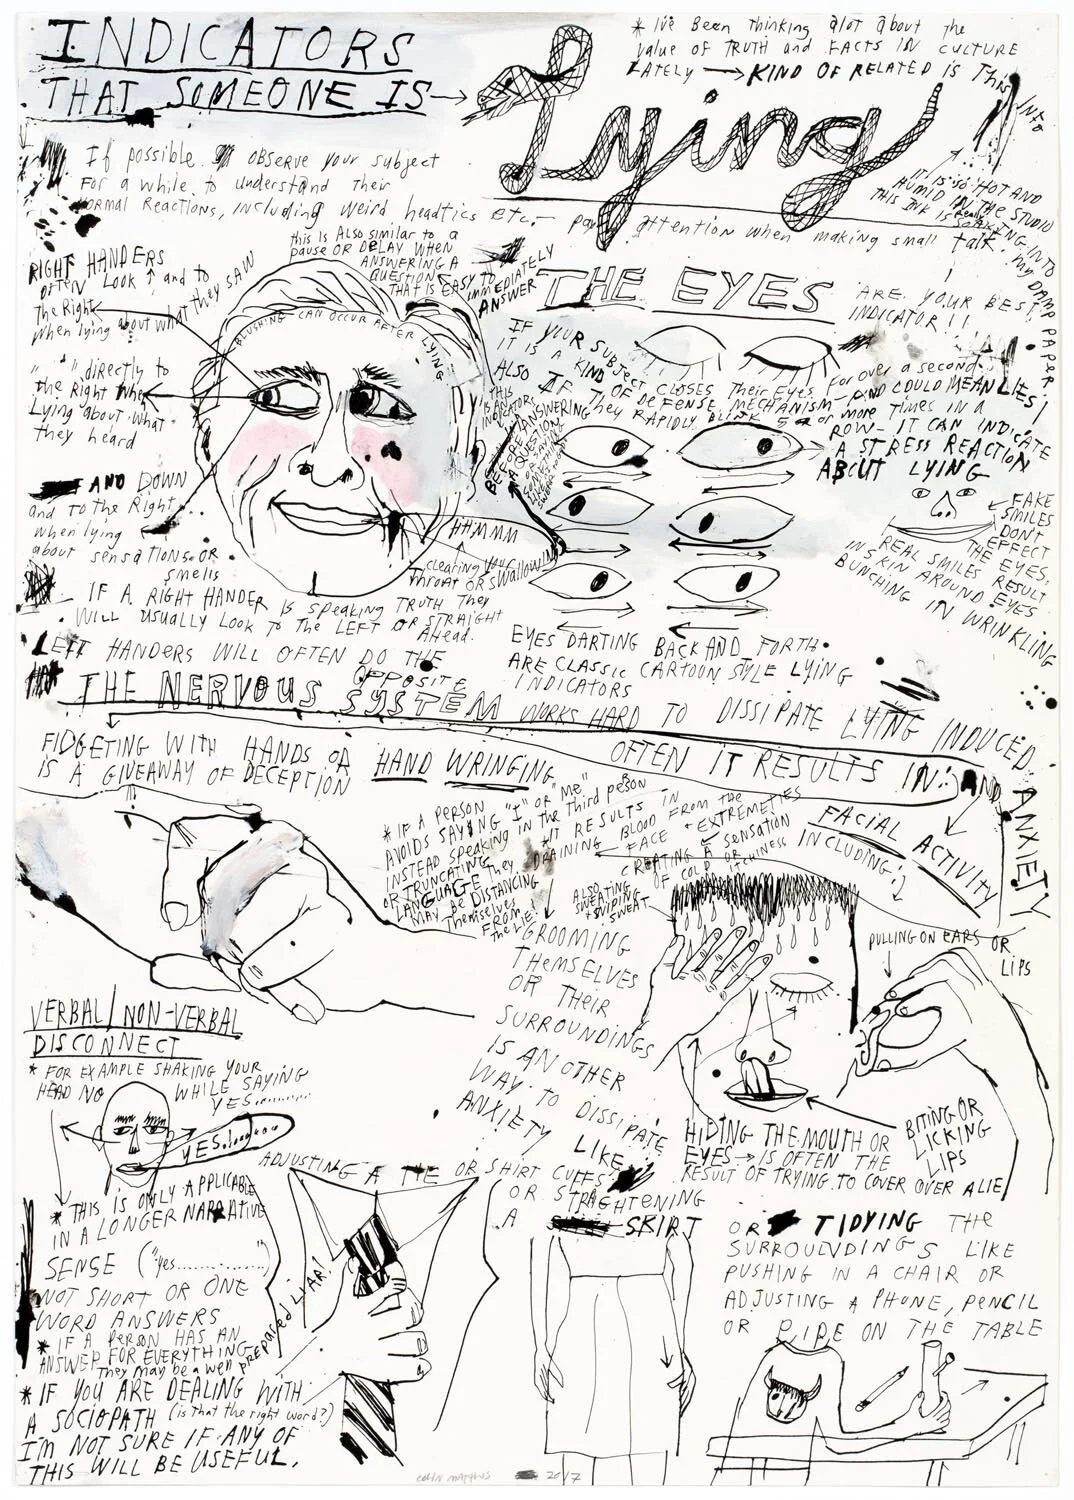 INDICATORS
THAT SOMEONE IS →
Lying
* I've Been Thinking alot about the
value of TRUTH and FACTS IN CULTURE
LATELY → KIND OF RELATED IS This
INFO
IT IS SO HOT AND
HUMID IN THE STUDIO
THIS INK IS Really
SOAKING INTO
my DAMP PAPER
If possible OBSERVE your subject
FOR a while to understand Their
Normal Reactions, including weird headtics etc. — pay attention when making small talk.
this is Also similar to a
pause OR DELAY WHEN
ANSWERING A
QUESTION
THAT IS EASY TO IMMEDIATELY
ANSWER
RIGHT HANDERS
OFTEN LOOK ↑ and to
the Right
when lying about what they SAW
" " directly to
the Right when
Lying about what
they heard
AND DOWN
and to the Right
when lying
about sensations OR
smells
BLUSHING CAN OCCUR AFTER LYING
HHMMM
clearing your
throat OR swallowing
IF A RIGHT HANDER IS speaking TRUTH They
WILL usually LOOK To The LEFT OR STRAIGHT
AHead.
LEFT HANDERS WILL OFTEN DO THE
OPPOSITE
THE EYES ARE YOUR BEST
INDICATOR!!
IF YOUR SUBJECT CLOSES Their Eyes For over a second
IT IS A KIND OF DEFENSE MECHANISM — AND COULD MEAN LIES!
ALSO IF They RAPIDLY BLINK 5 or more TIMES IN A
ROW — IT CAN INDICATE
A STRESS REACTION
ABOUT LYING
BEFORE ANSWERING
A QUESTION
FAKE
SMILES
DON'T
EFFECT
THE EYES.
REAL SMILES RESULT
IN SKIN AROUND EYES
BUNCHING IN WRINKLING
EYES DARTING BACK AND FORTH
ARE CLASSIC CARTOON STYLE LYING
INDICATORS
THE NERVOUS SYSTEM WORKS HARD TO DISSIPATE LYING INDUCED
ANXIETY
OFTEN IT RESULTS IN:
FIDGETING WITH HANDS OR HAND WRINGING
IS A GIVEAWAY OF DECEPTION
AND
FACIAL ACTIVITY
INCLUDING:
* IF A PERSON
AVOIDS SAYING "I" OR "me"
INSTEAD speaking in the Third person
OR TRUNCATING
LANGUAGE They
MAY Be DISTANCING
Themselves
FROM
the lie!
* IT RESULTS IN
DRAINING BLOOD FROM the
FACE + EXTREMETIES
CREATING A Sensation
OF COLD OR ITCHINESS
ALSO
SWEATING
+ WIPING
SWEAT
PULLING ON EARS OR
LIPS
GROOMING
THEMSELVES
OR THEIR
SURROUNDINGS
IS ANOTHER
WAY TO DISSIPATE
ANXIETY LIKE
BITING OR
LICKING
LIPS
HIDING THE MOUTH OR
EYES → IS OFTEN THE
RESULT OF TRYING TO COVER OVER A LIE
VERBAL/NON-VERBAL
DISCONNECT
* FOR EXAMPLE SHAKING YOUR
HEAD NO WHILE SAYING
YES..........
YES........
* THIS IS ONLY APPLICABLE
IN A LONGER NARRATIVE
SENSE ("yes..............")
NOT SHORT OR ONE
WORD ANSWERS
* IF A PERSON HAS AN
ANSWER FOR EVERYTHING
They may be a well prepared LIAR!
* IF YOU ARE DEALING WITH
A SOCIOPATH (is that the right word?)
I'M NOT SURE IF ANY OF
THIS WILL BE USEFUL.
ADJUSTING A TIE OR SHIRT CUFFS
OR STRAGHTENING
A SKIRT
OR TIDYING THE
SURROUNDINGS LIKE
PUSHING IN A CHAIR OR
ADJUSTING A PHONE, PENCIL
OR PIPE ON THE TABLE
2017